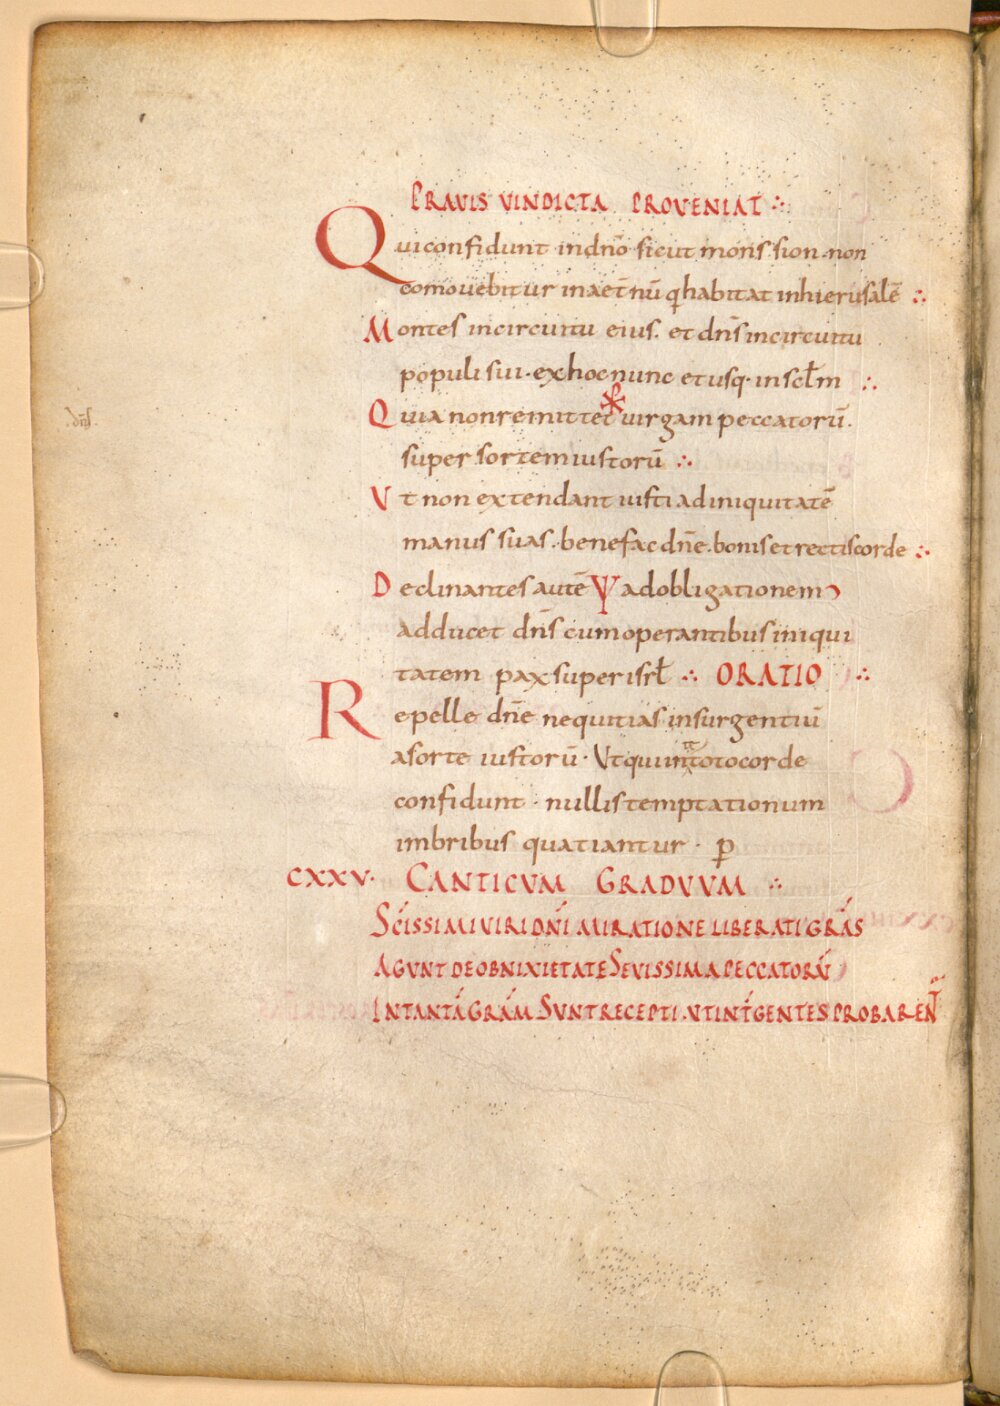 PRAVIS VINDICTA PROVENIAT ∴
Qui confidunt in dn̄o sicut mons sion · non
comovebitur in aet̄nū q̨ habitat in hierusalē ∴
Montes in circuitu eius. et dn̄s in circuitu
populi sui · ex hoc nunc et usq· in scł̄m ∴
Quia non remittet virgam peccatorū.
super sortem iustorū ∴
Ut non extendant iusti ad iniquitatē
manus suas · benefac dn̄e · bonis et rectis corde ∴
Declinantes autē ad obligationem
adducet dn̄s cum operantibus iniqui
tatem pax super isrł ∴ ORATIO ∴
Repelle dn̄e nequitias insurgentiū
a sorte iustorū · Ut qui in te toto corde
confidunt · nullis temptationum
imbribus quatiantur · p̱
CXXV· CANTICUM GRADUUM ∴
SCĪSSIMI VIRI DN̄I MIRATIONE LIBERATI GRĀS
AGUNT DE OBNIXIETATE SEVISSIMA PECCATORŪ
IN TANTĀ GRĀM SUNT RECEPTI · UT INT̄ GENTES PROBAREN̄T
.dn̄s.